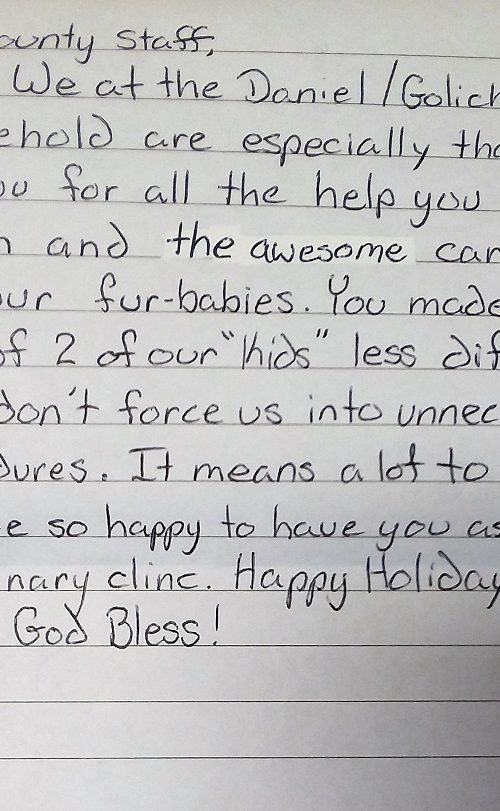 ounty Staff,
We at the Daniel/Golich
ehold are especially tha
ou for all the help you
n and the awesome car
our fur-babies. You made
of 2 of our "kids" less dif
don't force us into unnec
dures. It means a lot to
e so happy to have you as
nary clinc. Happy Holiday
God Bless!